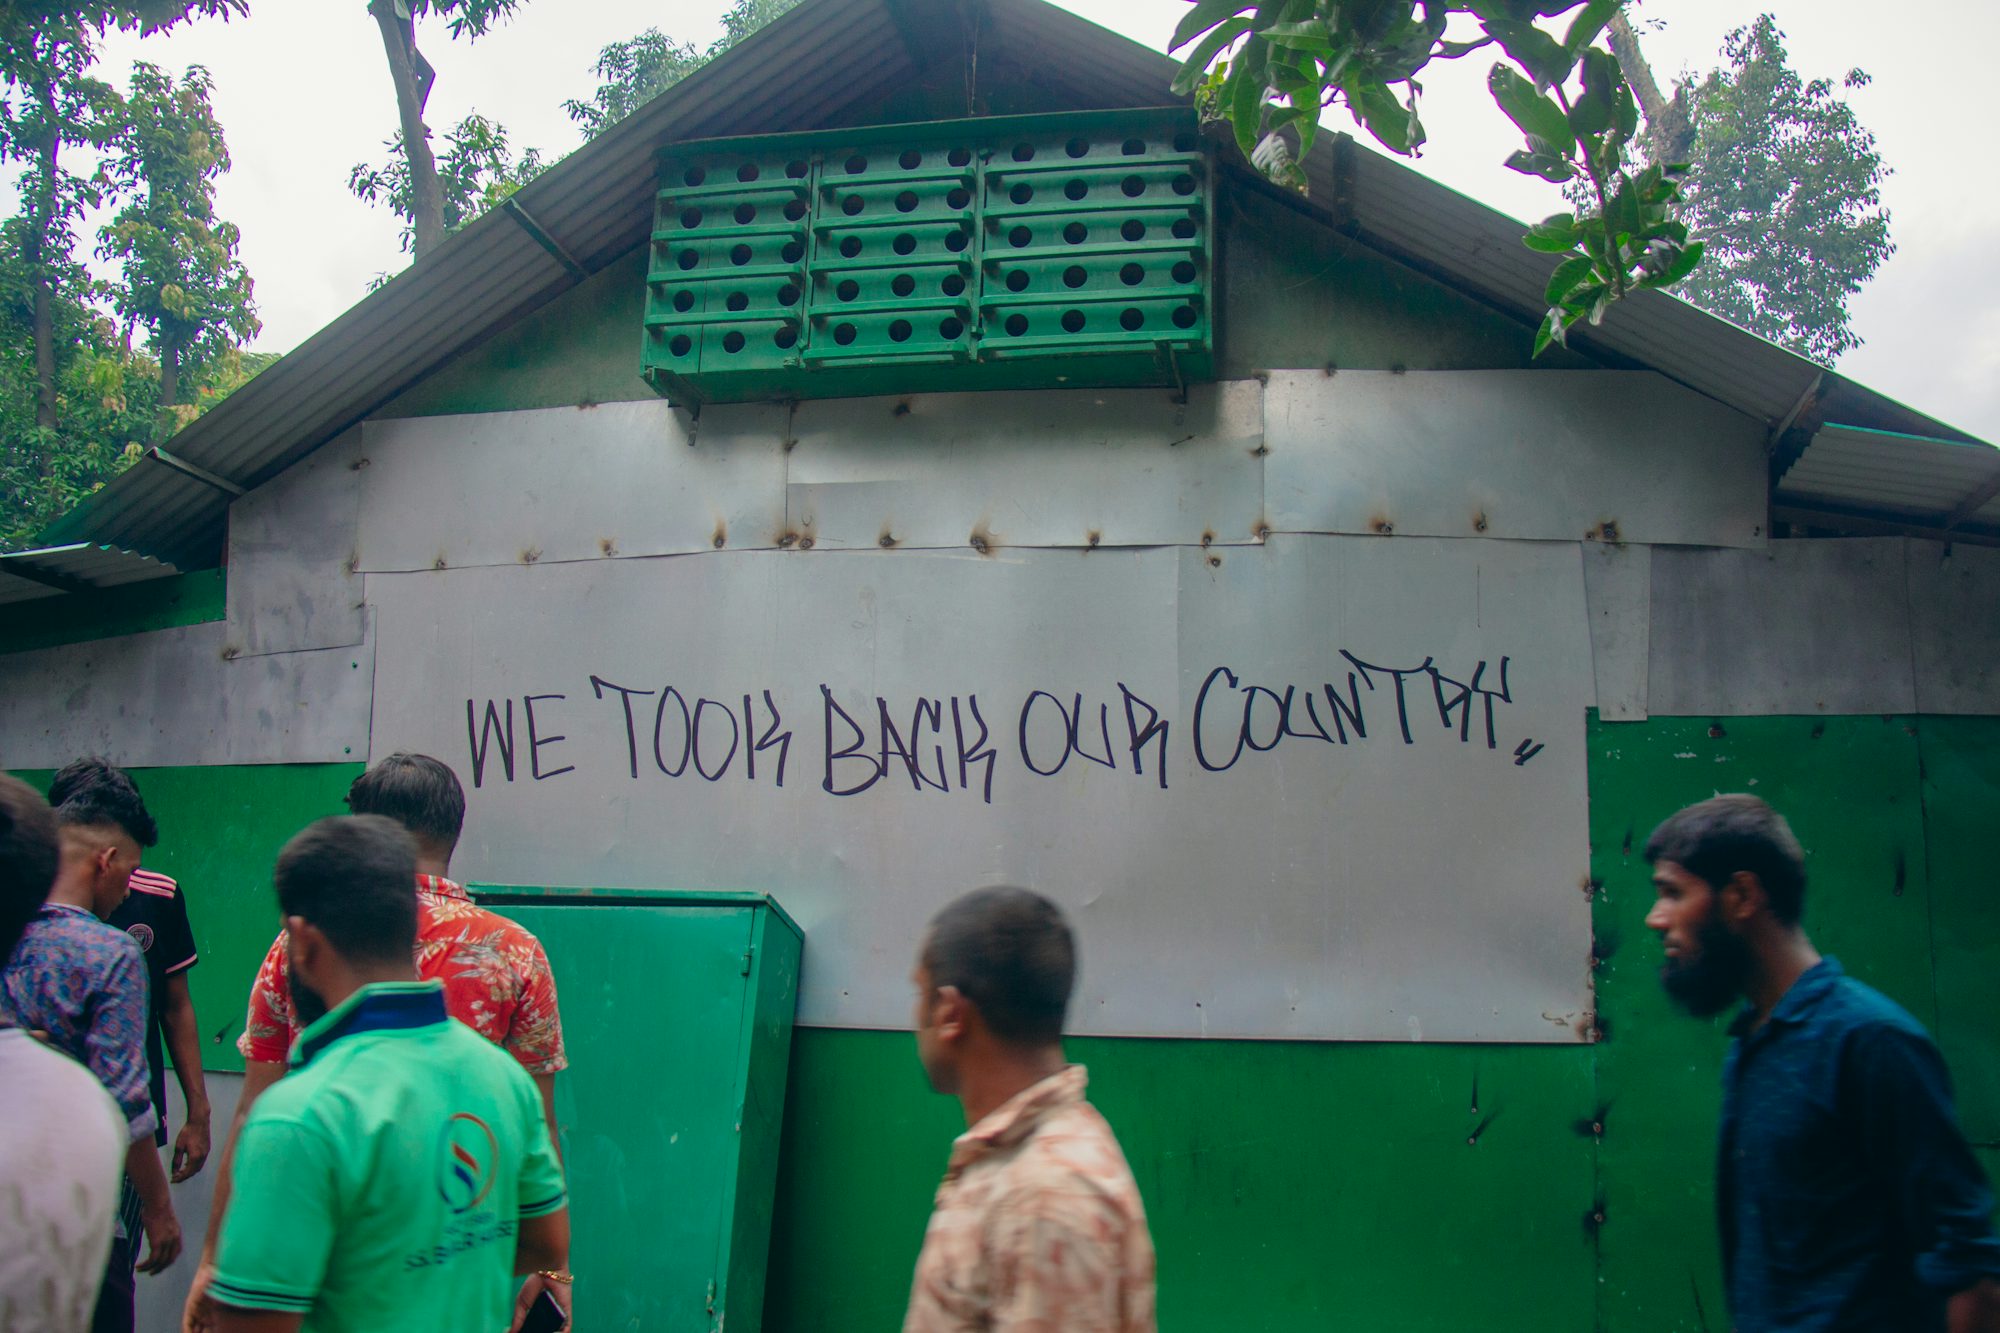 WE TOOK BACK OUR COUNTRY